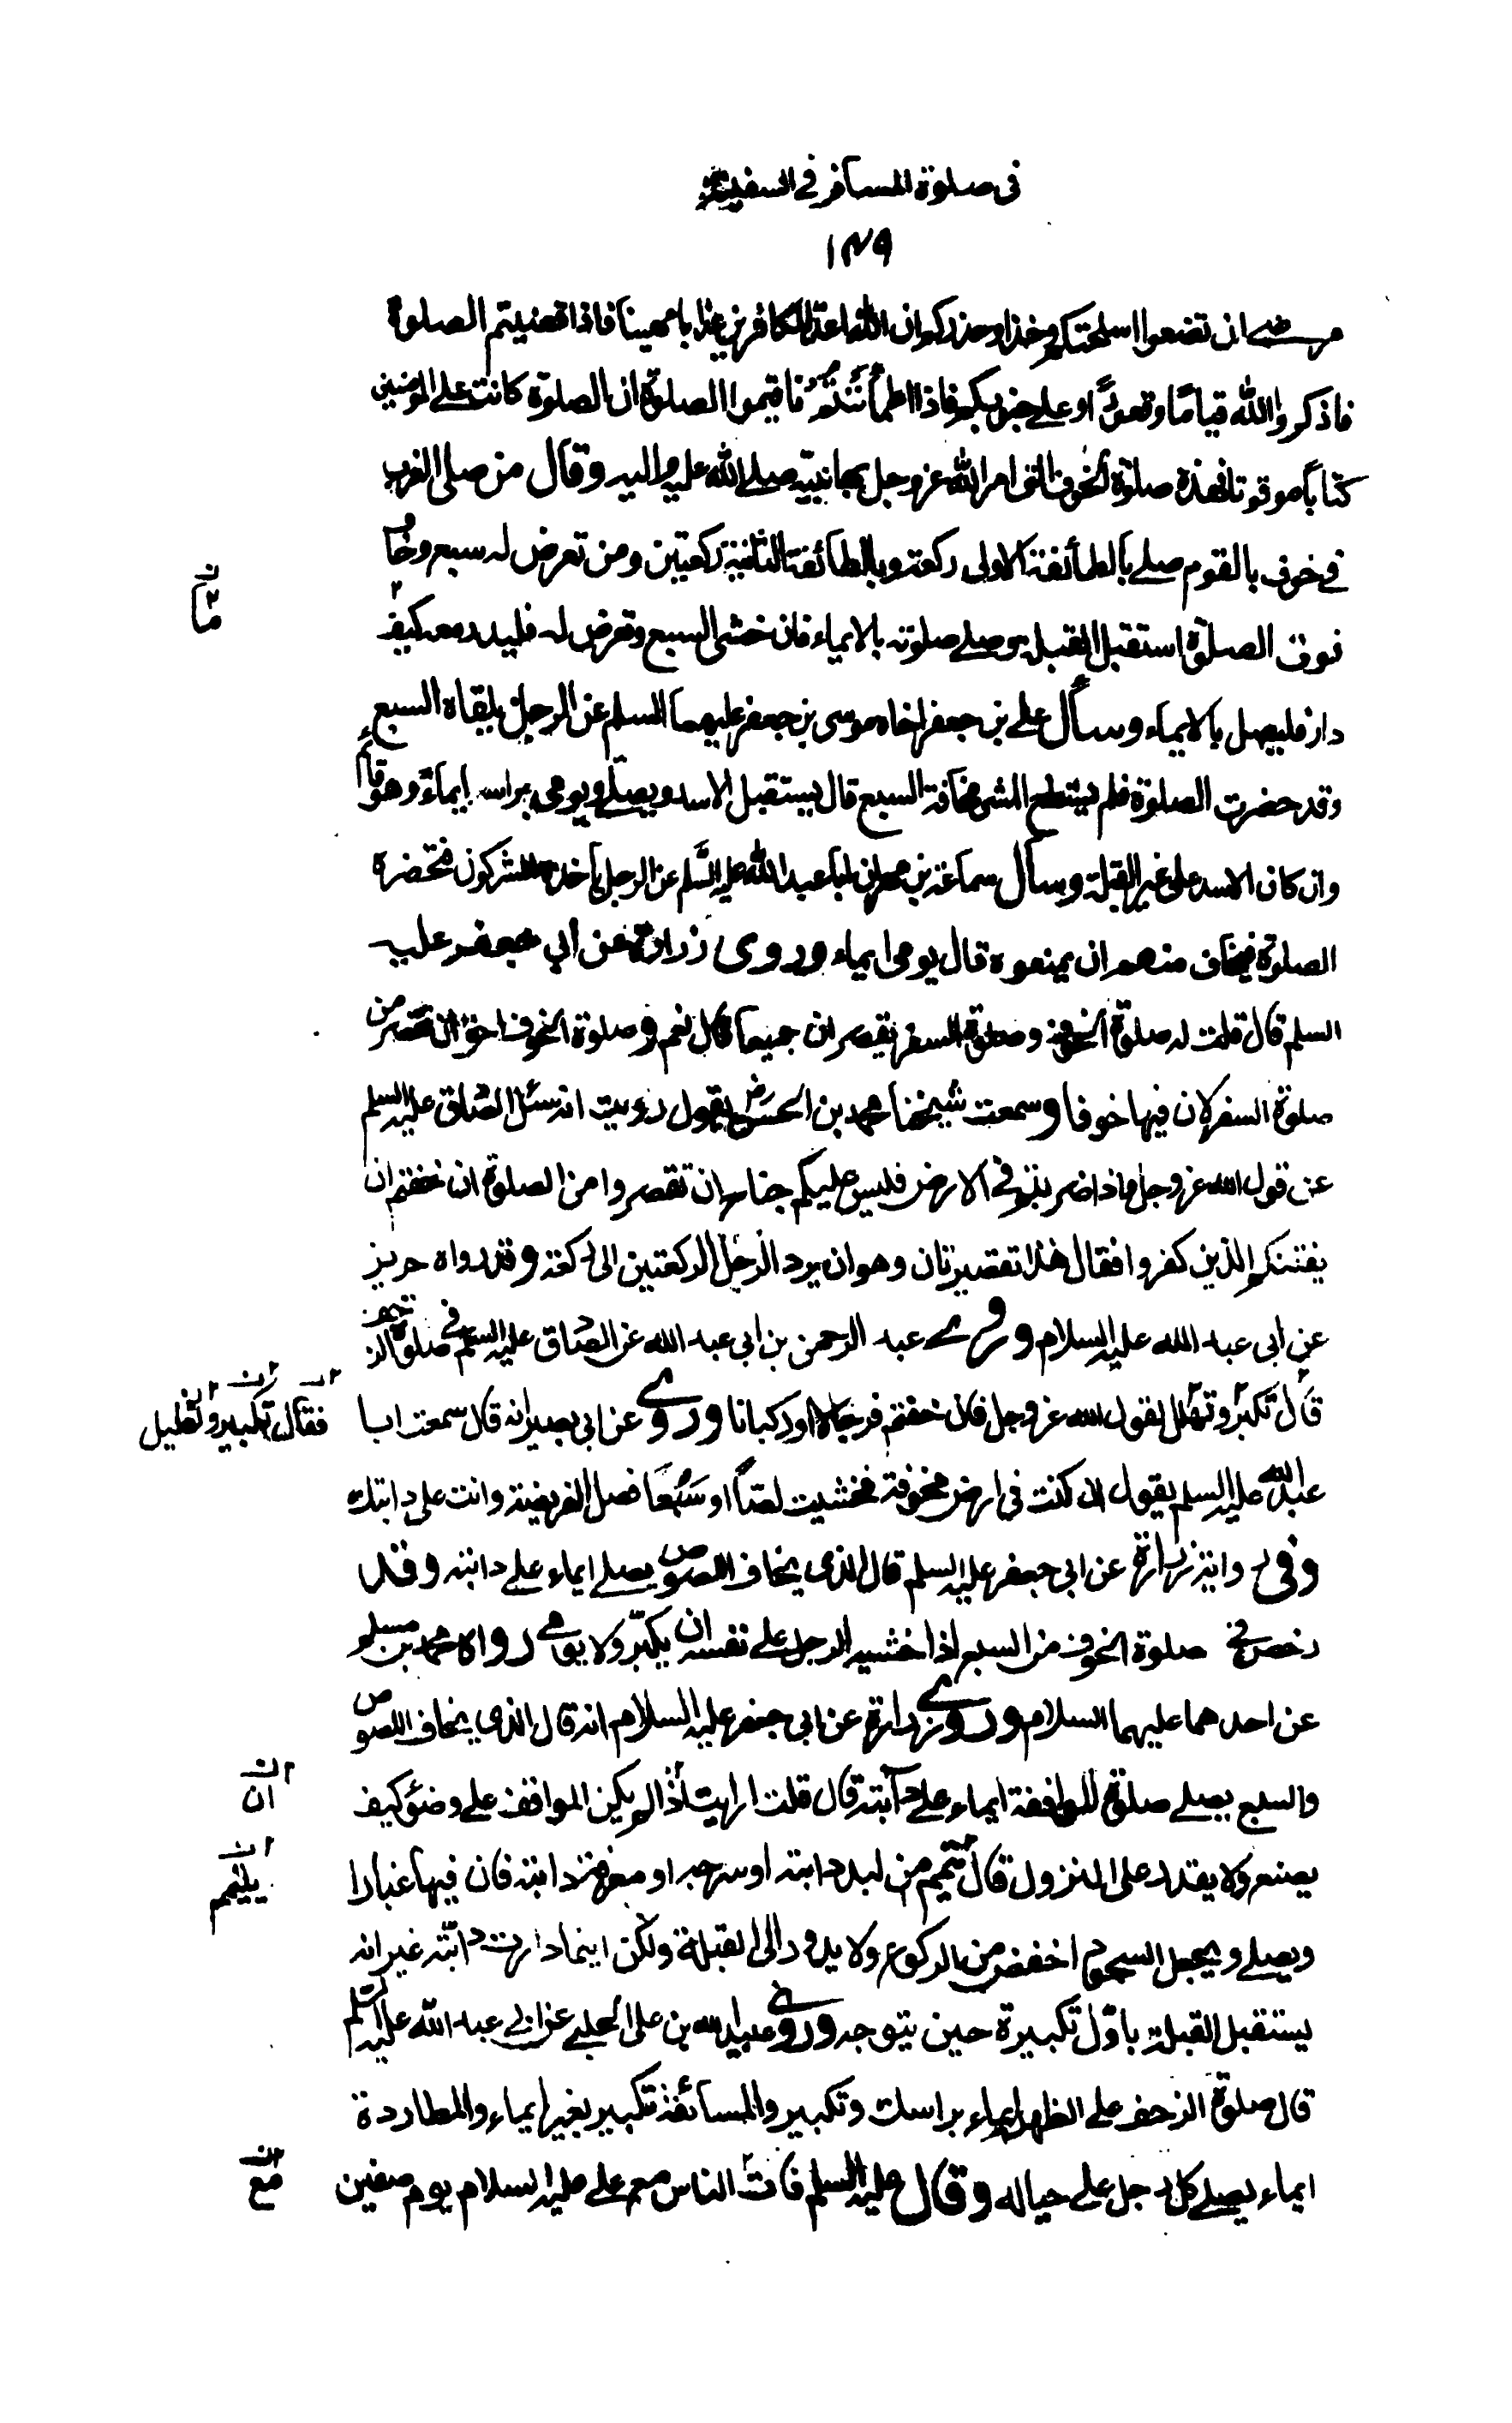 في صلوة المسافر في السفينة
١٤٩
مرضى ان تضعوا اسلحتكم وخذوا حذركم ان الله اعد للكافرين عذابا مهينا فاذا قضيتم الصلوة
فاذكروا الله قياماً وقعوداً او على جنوبكم فاذا اطمأننتم فاقيموا الصلوة ان الصلوة كانت على المؤمنين
كتاباً موقوتا فهذه صلوة الخوف التي امر الله عز وجل بها نبيه صلى الله عليه واله وقال من صلى المغرب
في خوف بالقوم صلى بالطائفة الاولى ركعة وبالطائفة الثانية ركعتين ومن تعرض له سبع وخاف
فوت الصلوة استقبل القبلة وصلى صلوته بالايماء فان خشى السبع وتعرض له فليدر معه كيف
دار فليصل بالايماء وسأل علي بن جعفر اخاه موسى بن جعفر عليهما السلم عن الرجل يلقاه السبع
وقد حضرت الصلوة فلم يستطع المشي مخافة السبع قال يستقبل الاسد ويصلي ويومي براسه ايماءً وهو قائم
وان كان الاسد على غير القبلة وسأل سماعة بن مهران ابا عبد الله عليه السلم عن الرجل يأخذه المشركون فتحضره
الصلوة فيخاف منهم ان يمنعوه قال يومى ايماء وروى زرارة عن ابي جعفر عليه
السلم قال قلت له صلوة الخوف وصلوة السفر يقصران جميعا قال نعم وصلوة الخوف احق ان تقصر من
صلوة السفر لان فيها خوفا وسمعت شيخنا محمد بن الحسن رض يقول رويت انه سئل الصادق عليه السلم
عن قول الله عز وجل واذا ضربتم في الارض فليس عليكم جناح ان تقصروا من الصلوة ان خفتم ان
يفتنكم الذين كفروا فقال هذا تقصير ثان وهو ان يرد الرجل الركعتين الى ركعة وقد رواه حريز
عن ابي عبد الله عليه السلام وروى عبد الرحمن بن ابي عبد الله عن الصادق عليه السلم في صلوة الزحف
قال تكبر وتهلل لقول الله عز وجل فان خفتم فرجالا او ركبانا وروى عن ابي بصير انه قال سمعت ابا
فقال تكبير وتهليل
عبد الله عليه السلم يقول ان كنت في ارض مخوفة فخشيت لصاً او سبعاً فصل الفريضة وانت على دابتك
وفي رواية زرارة عن ابي جعفر عليه السلم قال الذي يخاف اللصوص يصلي ايماء على دابته وقد
رخص في صلوة الخوف من السبع اذا خشيه الرجل على نفسه ان يكبر ولا يومى رواه محمد بن مسلم
عن احدهما عليهما السلام وروى زرارة عن ابي جعفر عليه السلام انه قال الذي يخاف اللصوص
والسبع يصلي صلوة المواقفة ايماء على دابته قال قلت ارايت اذا لم يكن المواقف على وضوء كيف
ان
يصنع ولا يقدر على النزول قال يتيمم من لبد دابته او سرجه او معرفة دابته فان فيها غبارا
ويصلي ويجعل السجود اخفض من الركوع ولا يدور الى القبلة ولكن اينما دارت دابته غير انه
يستقبل القبلة باول تكبيرة حين يتوجه وروى عبيد الله بن علي الحلبي عن ابي عبد الله عليه السلم
قال صلوة الزحف على الظهر ايماء براسك وتكبير والمسائفة تكبير بغير ايماء والمطاردة
ايماء يصلي كل رجل على حياله وقال عليه السلم فات الناس مع علي عليه السلام يوم صفين
مع